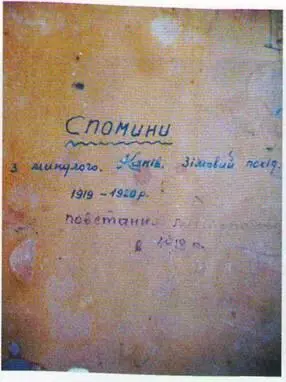 Спомини
з минулого. Київ. Зімовий похід.
1919 – 1920 р.
повстання
в 1918 р.